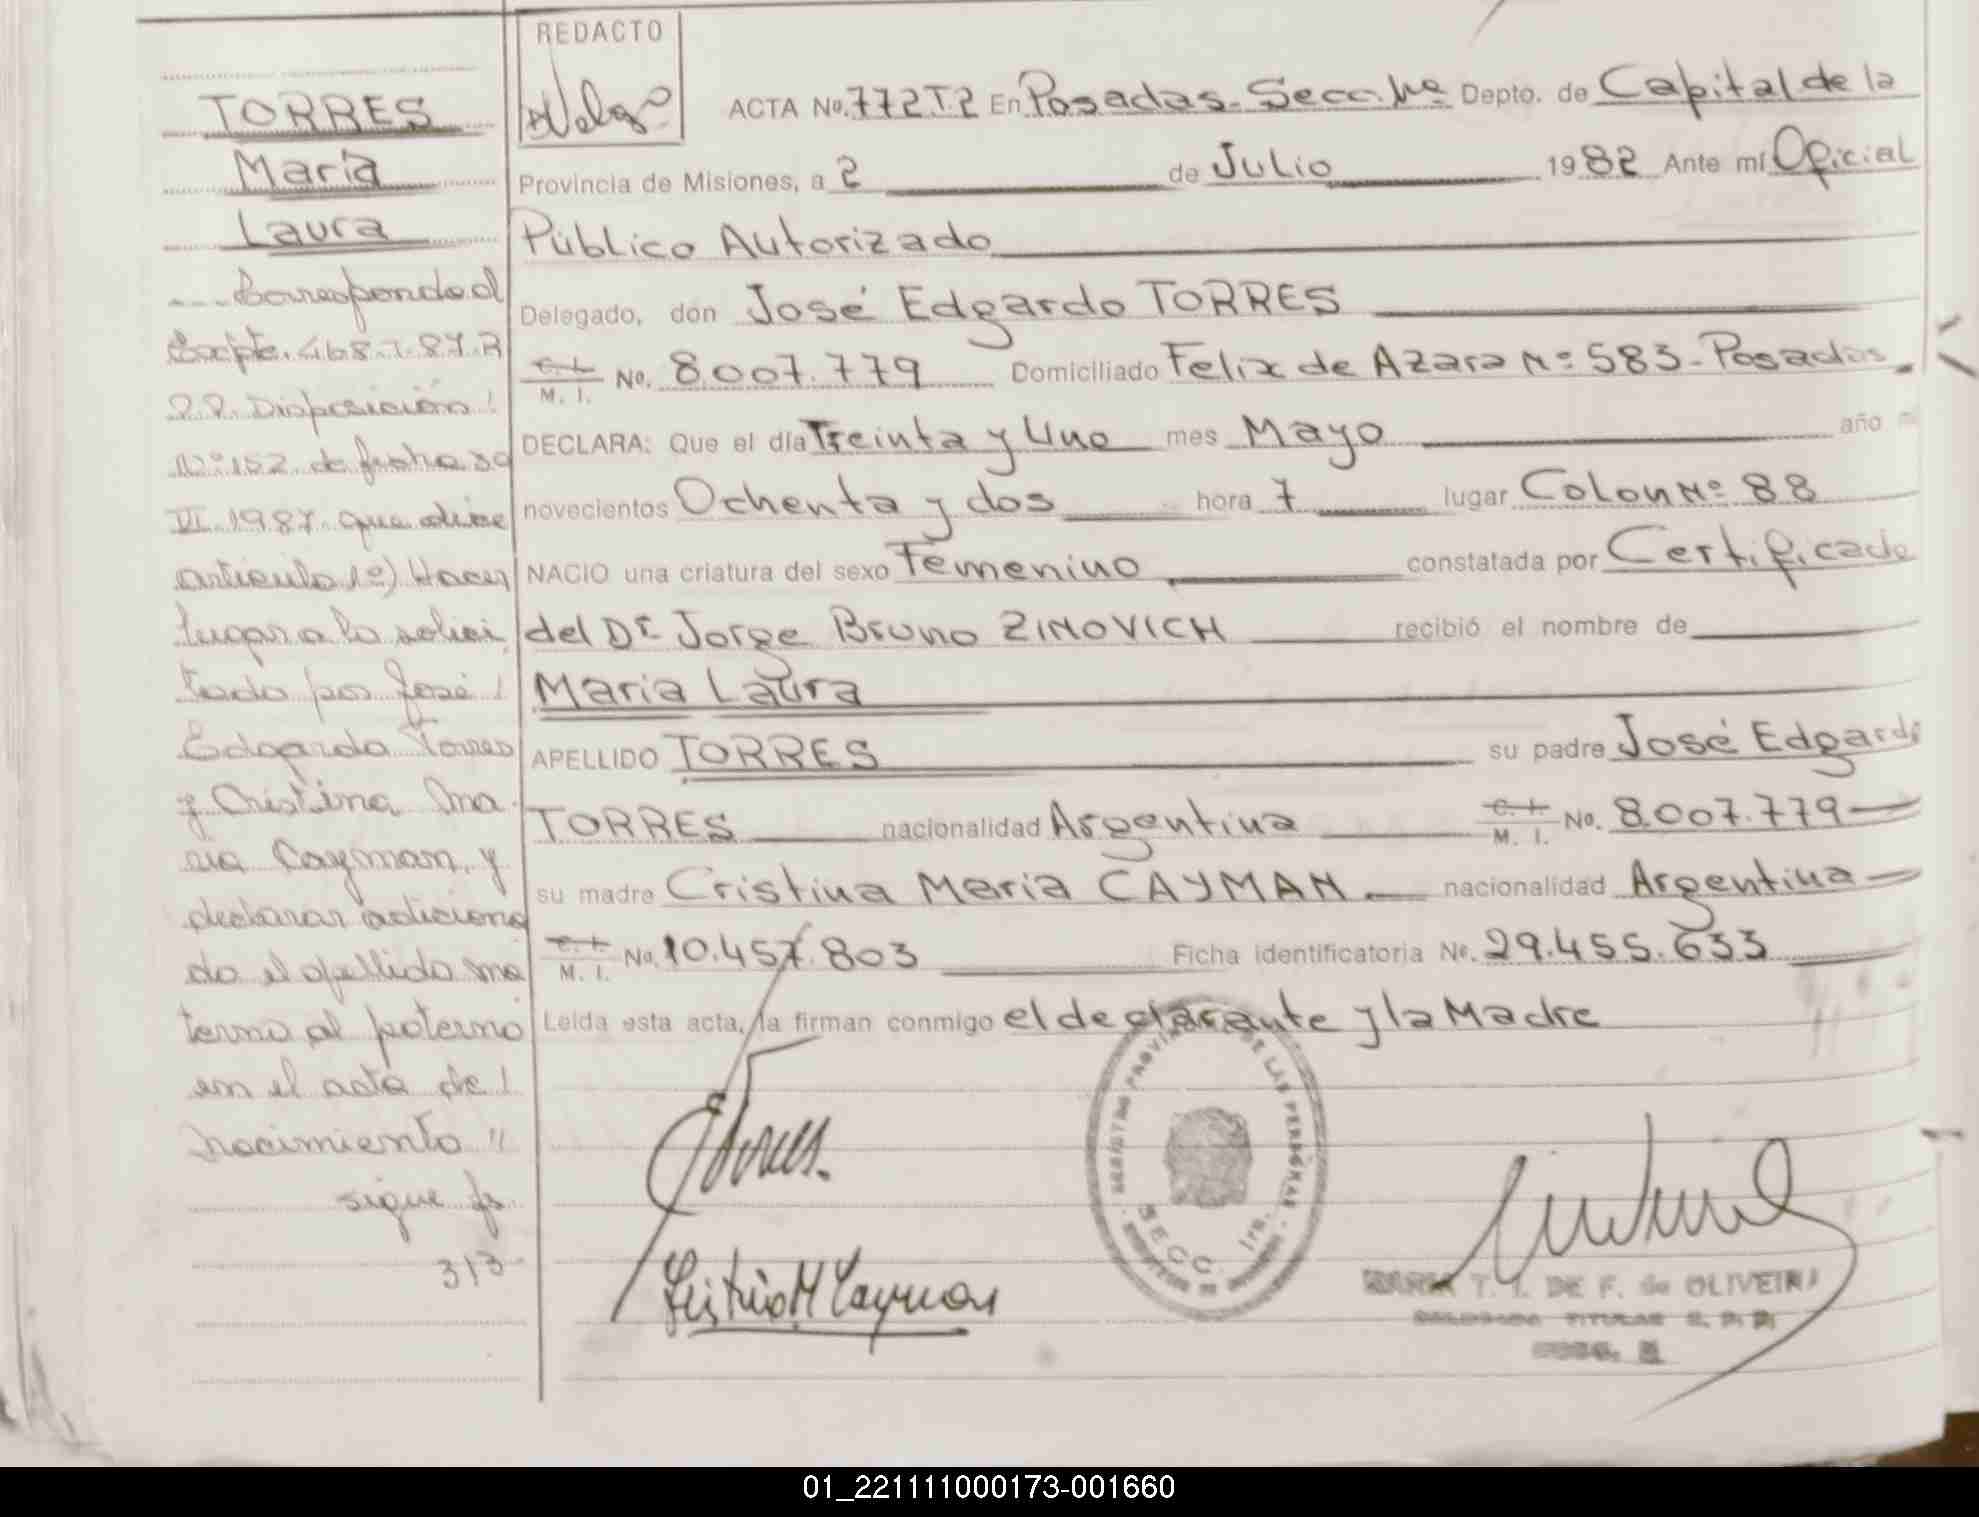 REDACTO
TORRES
María
Laura
ACTA No. 772T.2 En Posadas-Secc. Depto. de Capital de la
Provincia de Misiones, a 2 de Julio 1982 Ante mí Oficial
Público Autorizado
Delegado, don José Edgardo TORRES
C. I. M. I. No. 8.007.779 Domiciliado Felix de Azara Nº 583-Posadas
DECLARA: Que el día Treinta y Uno mes Mayo año
novecientos Ochenta y dos hora 7 lugar Colon Nº 88
NACIO una criatura del sexo Femenino constatada por Certificado
del Dr Jorge Bruno ZINOVICH recibió el nombre de
Maria Laura
APELLIDO TORRES su padre José Edgardo
TORRES nacionalidad Argentina C. I. M. I. No. 8.007.779
su madre Cristina Maria CAYMAN nacionalidad Argentina
C. I. M. I. No. 10.457.803 Ficha identificatoria No. 29.455.633
Leída esta acta, la firman conmigo el declarante y la Madre
Corresponde al
Expte.
Disposición
Nº 152 de fecha 30
VI 1987 que dice
artículo 1º) Hacer
lugar a lo solici
tado por José
Edgardo Torres
y Cristina Ma
ria Cayman, y
declarar adiciona
do el apellido ma
terno al paterno
en el acta de
nacimiento "
sigue fs.
313
SECC. 1ra.
DE LAS PERSONAS
MARIA T. I. DE F. de OLIVEIRA
TITULAR
01_221111000173-001660